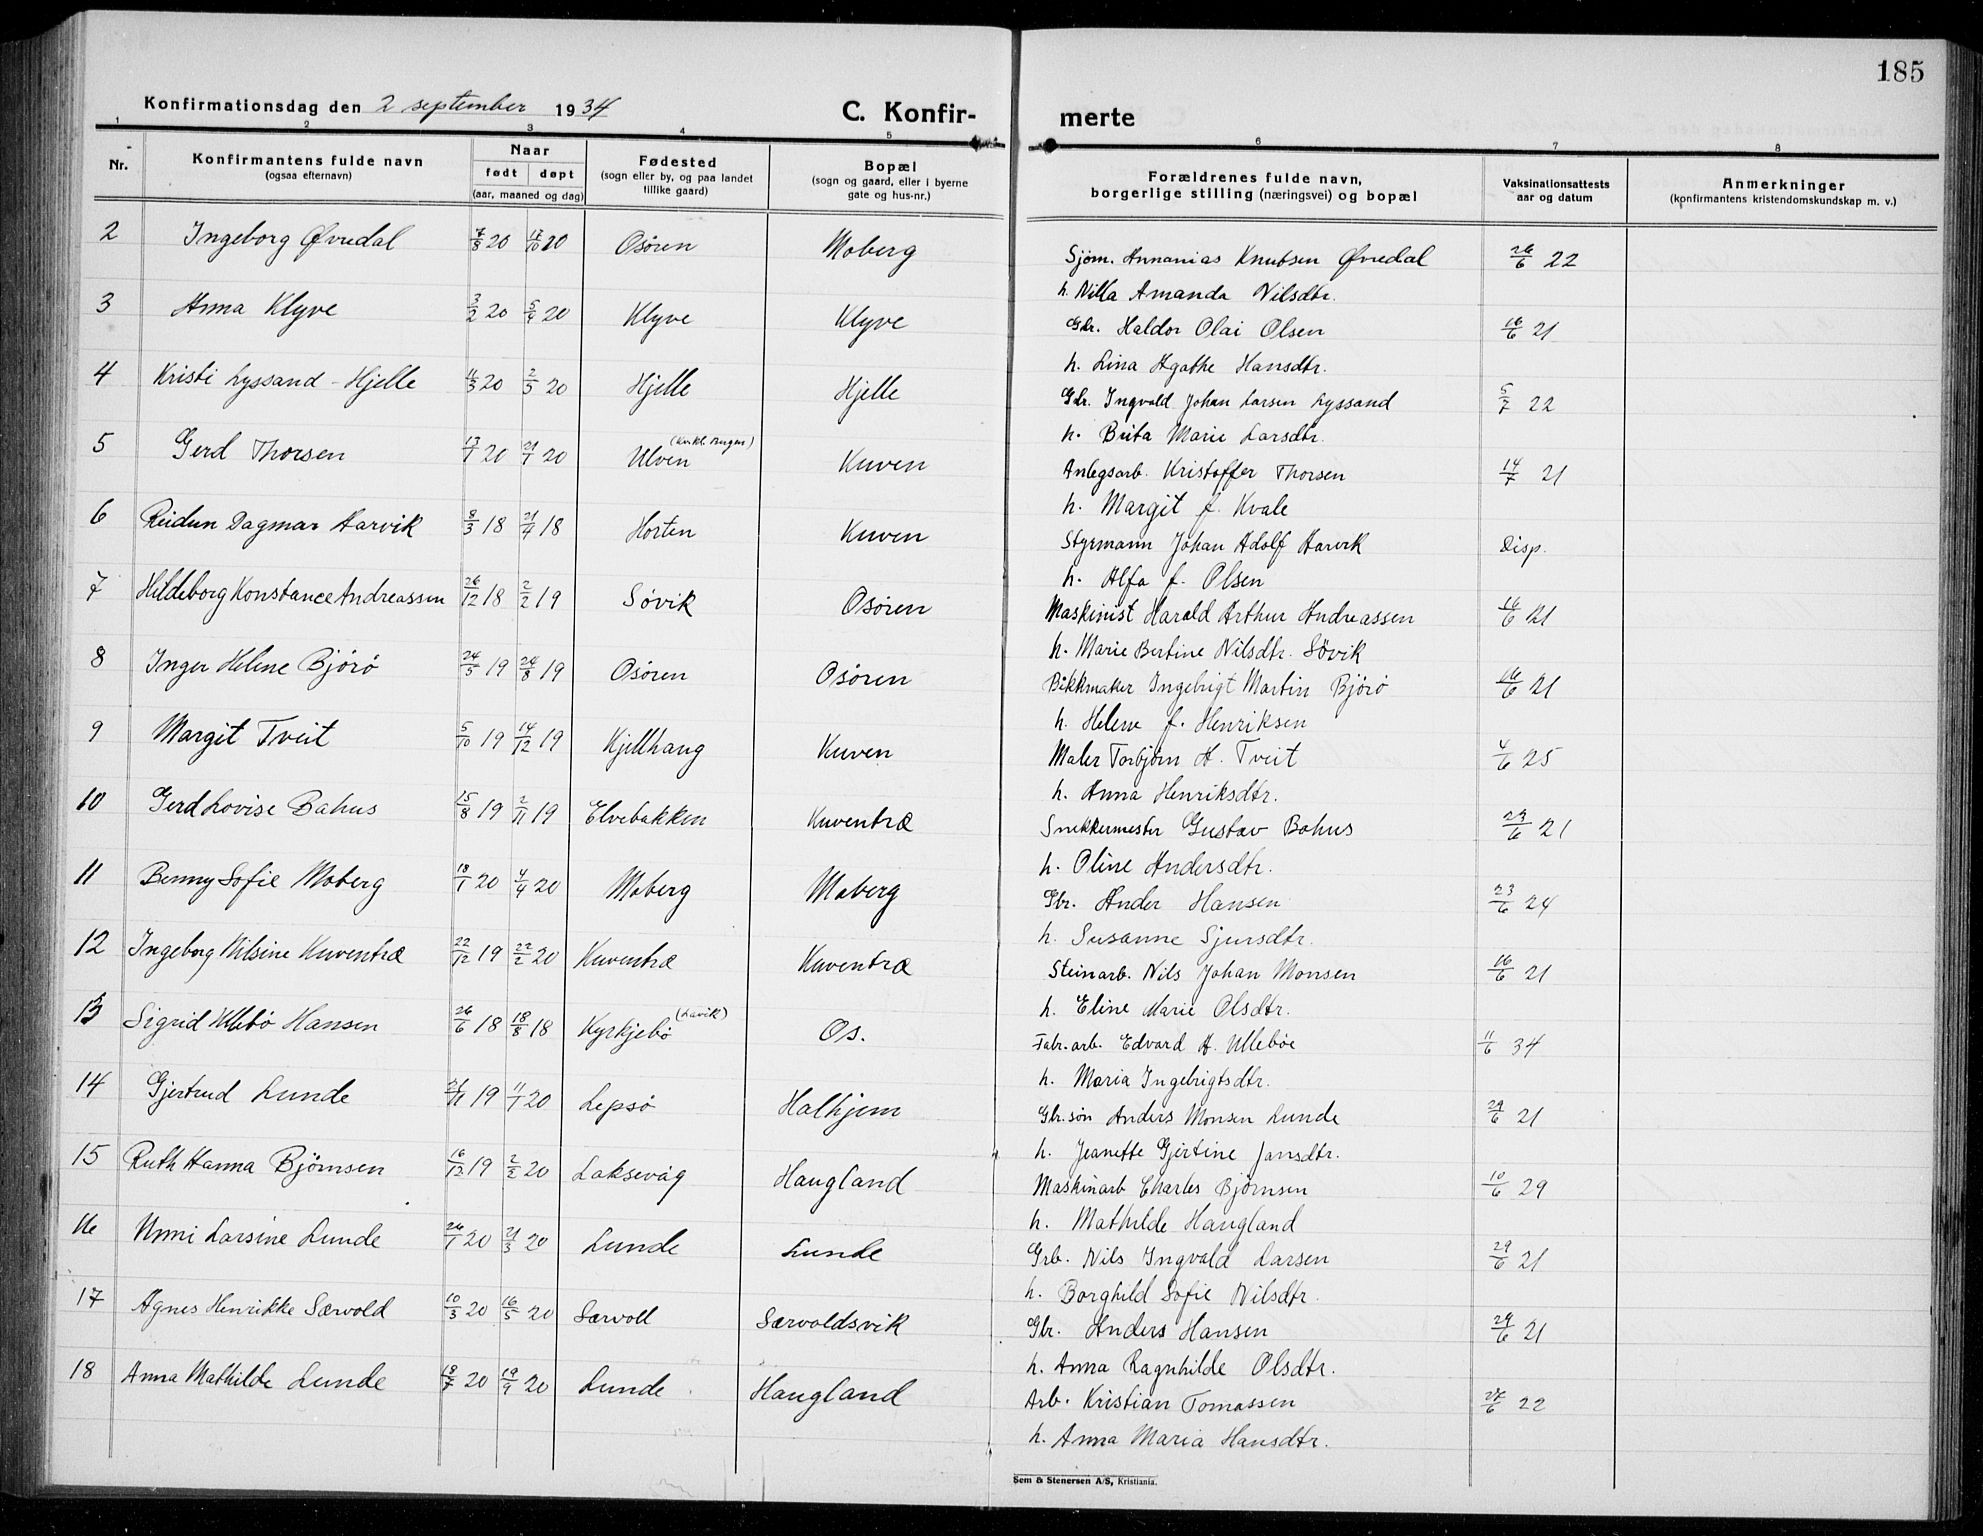 185
Konfirmationsdag den 2 september 1934
C. Konfir-
merte
1 2 3 4 5 6 7 8
Nr.
Konfirmantens fulde navn
(ogsaa efternavn)
Naar
født døpt
(aar, maaned og dag)
Fødested
(sogn eller by, og paa landet
tillike gaard)
Bopæl
(sogn og gaard, eller i byerne
gate og hus-nr.)
Forældrenes fulde navn,
borgerlige stilling (næringsvei) og bopæl
Vaksinationsattests
aar og datum
Anmerkninger
(konfirmantens kristendomskundskap m. v.)
2 Ingeborg Øvredal 7/8 20 17/10 20 Osøren Moberg Sjøm. Annanias Knutsen Øvredal 26/6 22
h. Nilla Amanda Nilsdtr.
3 Anna Klyve 3/2 20 5/4 20 Klyve Klyve Gbr. Haldor Olai Olsen 16/6 21
h. Lina Agathe Hansdtr.
4 Kristi Lyssand-Hjelle 11/3 20 2/5 20 Hjelle Hjelle Gbr. Ingvald Johan Larsen Lyssand 5/7 22
h. Brita Marie Larsdtr.
5 Gerd Thorsen 13/1 20 21/1 20 Ulven Kuven Anlegsarb. Kristoffer Thorsen 14/7 21
h. Margit f. Kvale
6 Reidun Dagmar Aarvik 8/3 18 21/4 18 Horten Kuven Styrmann Johan Adolf Aarvik Disp.
h. Alfa f. Olsen
7 Hildeborg Konstance Andreassen 26/12 18 2/2 19 Søvik Osøren Maskinist Harald Arthur Andreassen 16/6 21
h. Marie Bertine Nilsdtr. Søvik
8 Inger Helene Bjørø 24/5 19 24/8 19 Osøren Osøren Blikkmaker Ingebrigt Martin Bjørø 16/6 21
h. Helene f. Henriksen
9 Margit Tveit 5/10 19 14/12 19 Kjellhaug Kuven Maler Torbjørn H. Tveit 4/6 25
h. Anna Henriksdtr.
10 Gerd Lovise Bahus 15/8 19 2/11 19 Elvebakken Kuventræ Snekkermester Gustav Bahus 29/6 21
h. Oline Andersdtr.
11 Benny Sofie Moberg 18/1 20 4/4 20 Moberg Moberg Gbr. Ander Hansen 23/6 24
h. Susanne Sjursdtr.
12 Ingeborg Nilsine Kuventræ 22/12 19 22/2 20 Kuventræ Kuventræ Steinarb. Nils Johan Monsen 16/6 21
h. Eline Marie Olsdtr.
13 Sigrid Ullebø Hansen 26/6 18 18/8 18 Kyrkjebø (Lavik) Os. Fabr.arb. Edvard H. Ullebøe 11/6 34
h. Maria Ingebrigtsdtr.
14 Gjertrud Lunde 21/11 19 11/1 20 Lepsø Halhjem Gbr.søn Anders Monsen Lunde 29/6 21
h. Jeanette Gjertine Jansdtr.
15 Ruth Hanna Bjørnsen 16/12 19 2/2 20 Laksevåg Haugland Maskinarb Charles Bjørnsen 10/6 29
h. Mathilde Haugland
16 Unni Larsine Lunde 26/1 20 21/3 20 Lunde Lunde Grb. Nils Ingvald Larsen 29/6 21
h. Borghild Sofie Nilsdtr.
17 Agnes Henrikke Særvold 10/3 20 16/5 20 Særvoll Særvoldsvik Gbr. Anders Hansen 29/6 21
h. Anna Ragnhilde Olsdtr.
18 Anna Mathilde Lunde 18/7 20 19/9 20 Lunde Haugland Arb. Kristian Tomassen 27/6 22
h. Anna Maria Hansdtr.
Sem & Stenersen A/S, Kristiania.